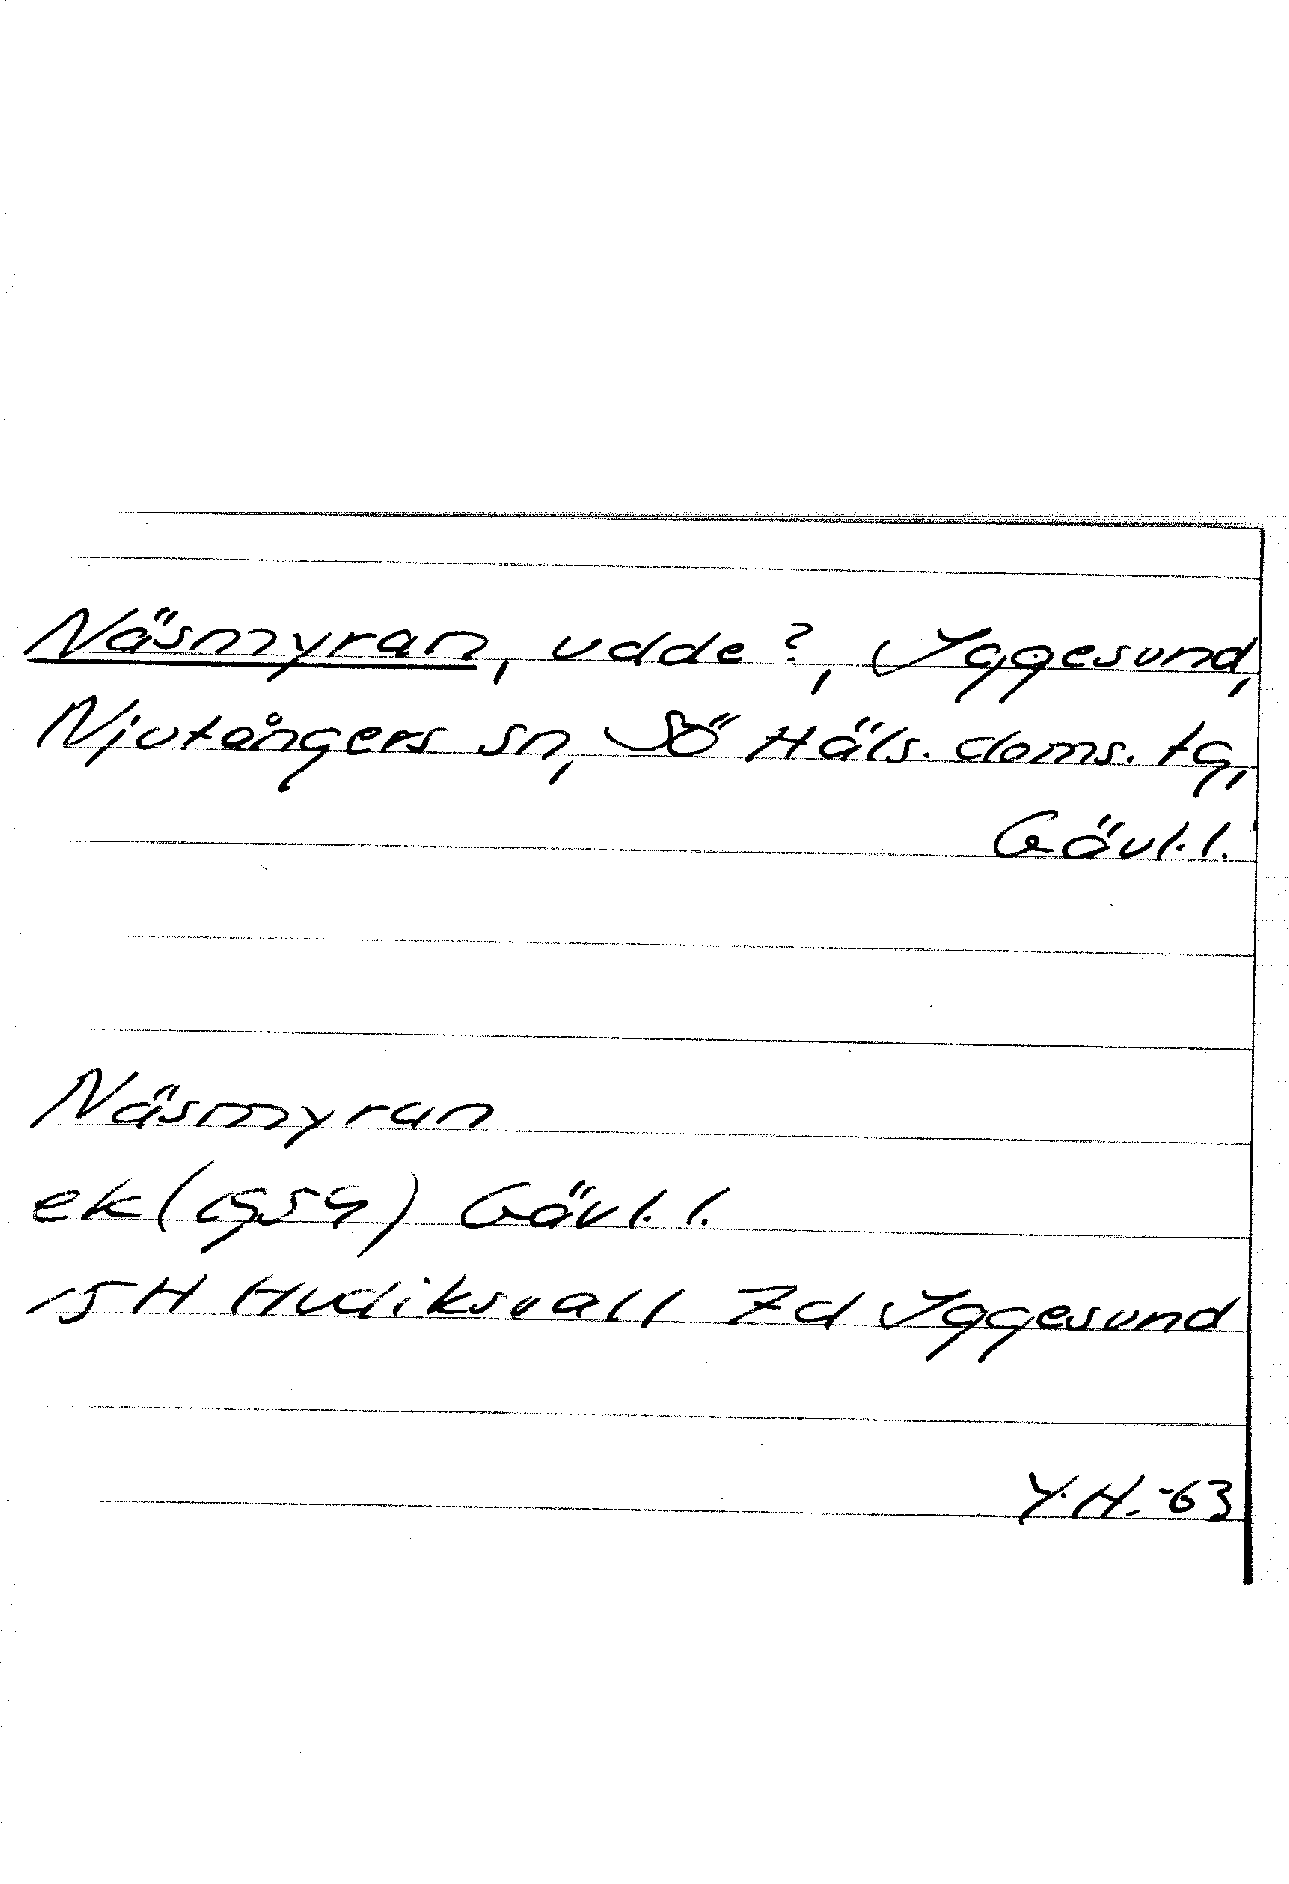 Näsmyran, udde?, Iggesund,
Njutångers sn, Sö Häls. doms. tg,
Gävl. l.
Näsmyran
ek (1954) Gävl. l.
15H Hudiksvall 7d Iggesund
Y.H.-63